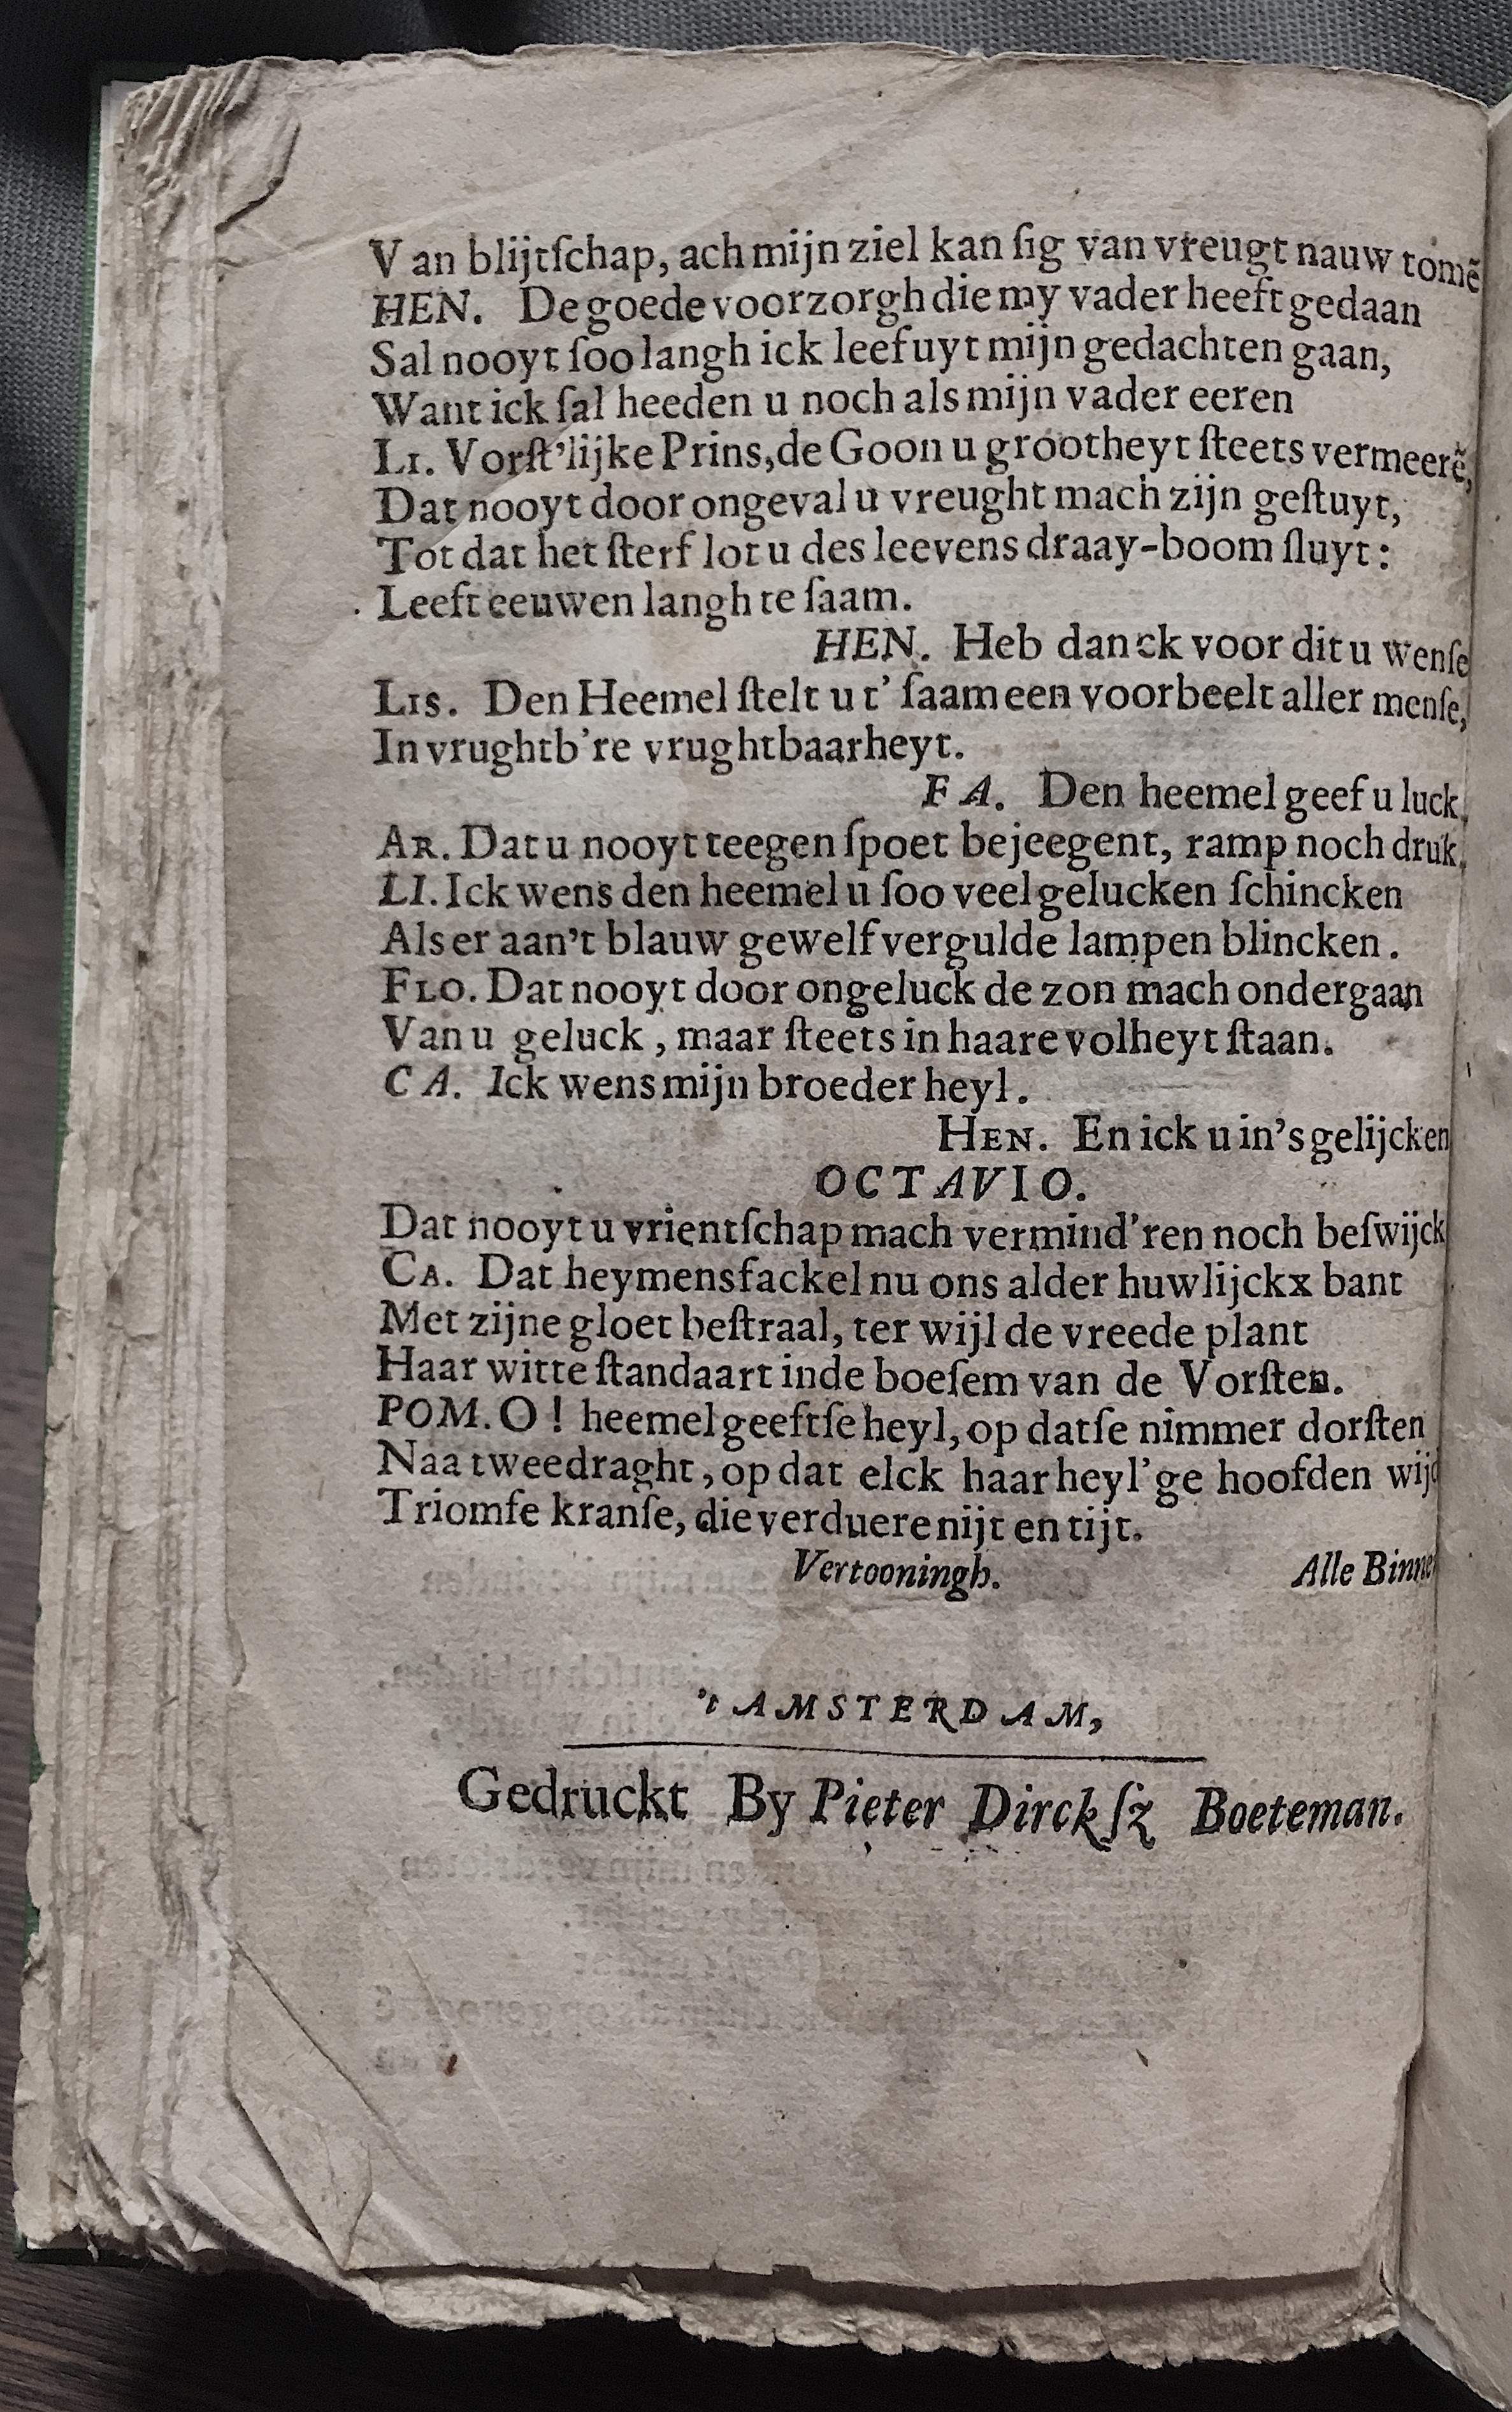 Van blijtſchap, ach mijn ziel kan ſig van vreugt nauw tomẽ
HEN. De goede voorzorgh die my vader heeft gedaan
Sal nooyt ſoo langh ick leef uyt mijn gedachten gaan,
Want ick ſal heeden u noch als mijn vader eeren
LI. Vorſt'lijke Prins, de Goon u grootheyt ſteets vermeerẽ,
Dat nooyt door ongeval u vreught mach zijn geſtuyt,
Tot dat het ſterf lot u des leevens draay-boom ſluyt:
Leeft eeuwen langh te ſaam.
HEN. Heb danck voor dit u wenſe
LIS. Den Heemel ſtelt u t' ſaam een voorbeelt aller menſe,
In vrughtb're vrughtbaarheyt.
FA. Den heemel geef u luck,
AR. Dat u nooyt teegen ſpoet bejeegent, ramp noch druk,
LI. Ick wens den heemel u ſoo veel gelucken ſchincken
Als er aan't blauw gewelf vergulde lampen blincken.
FLO. Dat nooyt door ongeluck de zon mach ondergaan
Van u geluck, maar ſteets in haare volheyt ſtaan.
CA. Ick wens mijn broeder heyl.
HEN. En ick u in's gelijcken
OCTAVIO.
Dat nooyt u vrientſchap mach vermind'ren noch beſwijck
CA. Dat heymens fackel nu ons alder huwlijckx bant
Met zijne gloet beſtraal, ter wijl de vreede plant
Haar witte ſtandaart inde boeſem van de Vorſten.
POM. O! heemel geeftſe heyl, op datſe nimmer dorſten
Naa tweedraght, op dat elck haar heyl'ge hoofden wijd
Triomfe kranſe, die verduere nijt en tijt.
Vertooningh. Alle Binne
't AMSTERDAM,
Gedruckt By Pieter Dirckſz Boeteman.